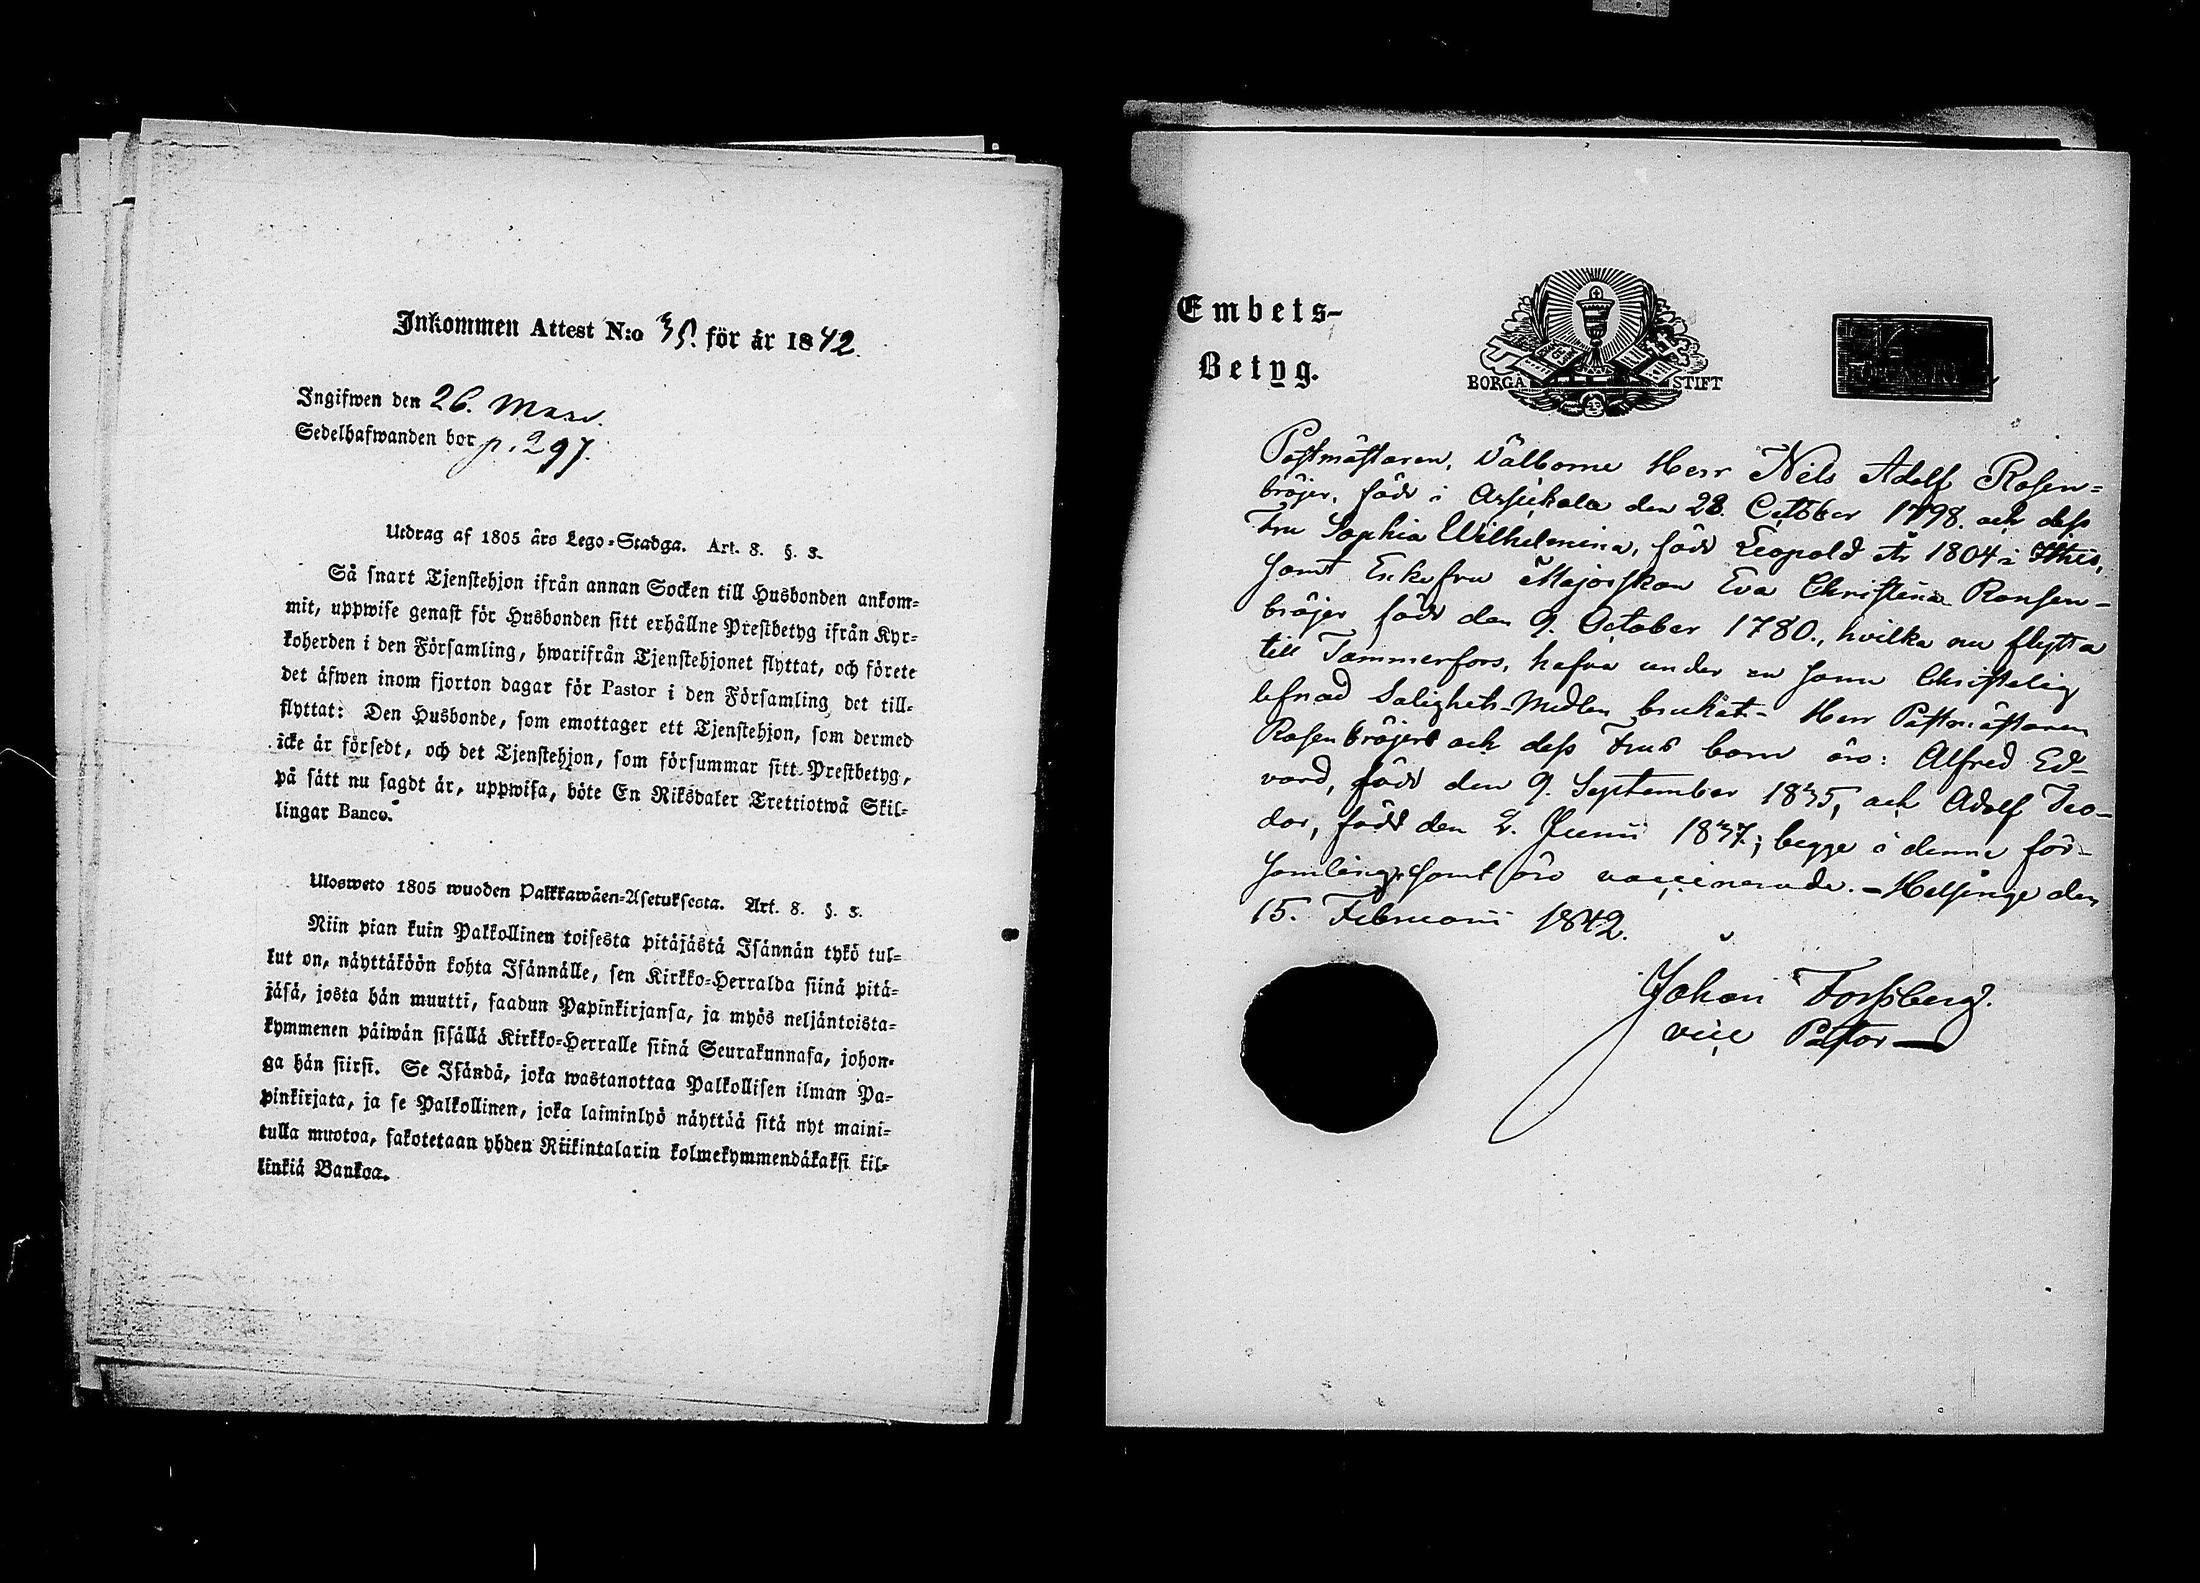 Inkommen Attest N:o 35. för år 1842.
Ingifwen den 26. Mars.
Sedelhafwanden bor p. 297.
Utdrag af 1805 års Lego-Stadga. Art. 8. §. 3.
Så snart Tjenstehjon ifrån annan Socken till Husbonden ankom-
mit, uppwise genast för Husbonden sitt erhållne Prestbetyg ifrån Kyr-
koherden i den Församling, hwarifrån Tjenstehjonet flyttat, och förete
det äfwen inom fjorton dagar för Pastor i den Församling det till-
flyttat: Den Husbonde, som emottager ett Tjenstehjon, som dermed
icke är försedt, och det Tjenstehjon, som försummar sitt Prestbetyg,
på sätt nu sagdt är, uppwisa, böte En Riksdaler Trettiotwå Skil-
lingar Banco.
Ulosweto 1805 wuoden Palkkawäen-Asetuksesta. Art. 8. §. 3.
Niin pian kuin Palkollinen toisesta pitäjästä Isännän tykö tul-
lut on, näyttäköön kohta Isännälle, sen Kirkko-Herralda siinä pitä-
jäsä, josta hän muutti, saadun Papinkirjansa, ja myös neljäntoista-
kymmenen päiwän sisällä Kirkko-Herralle siinä Seurakunnasa, johon-
ga hän siirsi. Se Isändä, joka wastanottaa Palkollisen ilman Pa-
pinkirjata, ja se Palkollinen, joka laiminlyö näyttää sitä nyt maini-
tulla muotoa, sakotetaan yhden Riikintalarin kolmekymmendäkaksi kil-
linkiä Bankoa.
Embets-
Betyg.
BORGÅ STIFT
Postmästaren, Välborne Herr Nils Adolf Rosen-
bröijer, född i Asikkala den 28. October 1798. och dess
Fru Sophia Wilhelmina, född Leopold år 1804 i Itthis,
samt Enkefru Majorskan Eva Christina Ronsen-
bröijer född den 9. October 1780., hvilka nu flytta
till Tammerfors, hafva under en sann Christelig
lefnad Salighets-Medlen brukat. Herr Postmästaren
Rosenbröijers och dess Frus barn äro: Alfred Ed-
vard, född den 9. September 1835, och Adolf Teo-
dor, född den 2. Junii 1837; begge i denne för-
samling, samt äro vaccinerade. – Helsinge den
15. Februarii 1842.
Johan Forssberg.
vice Pastor